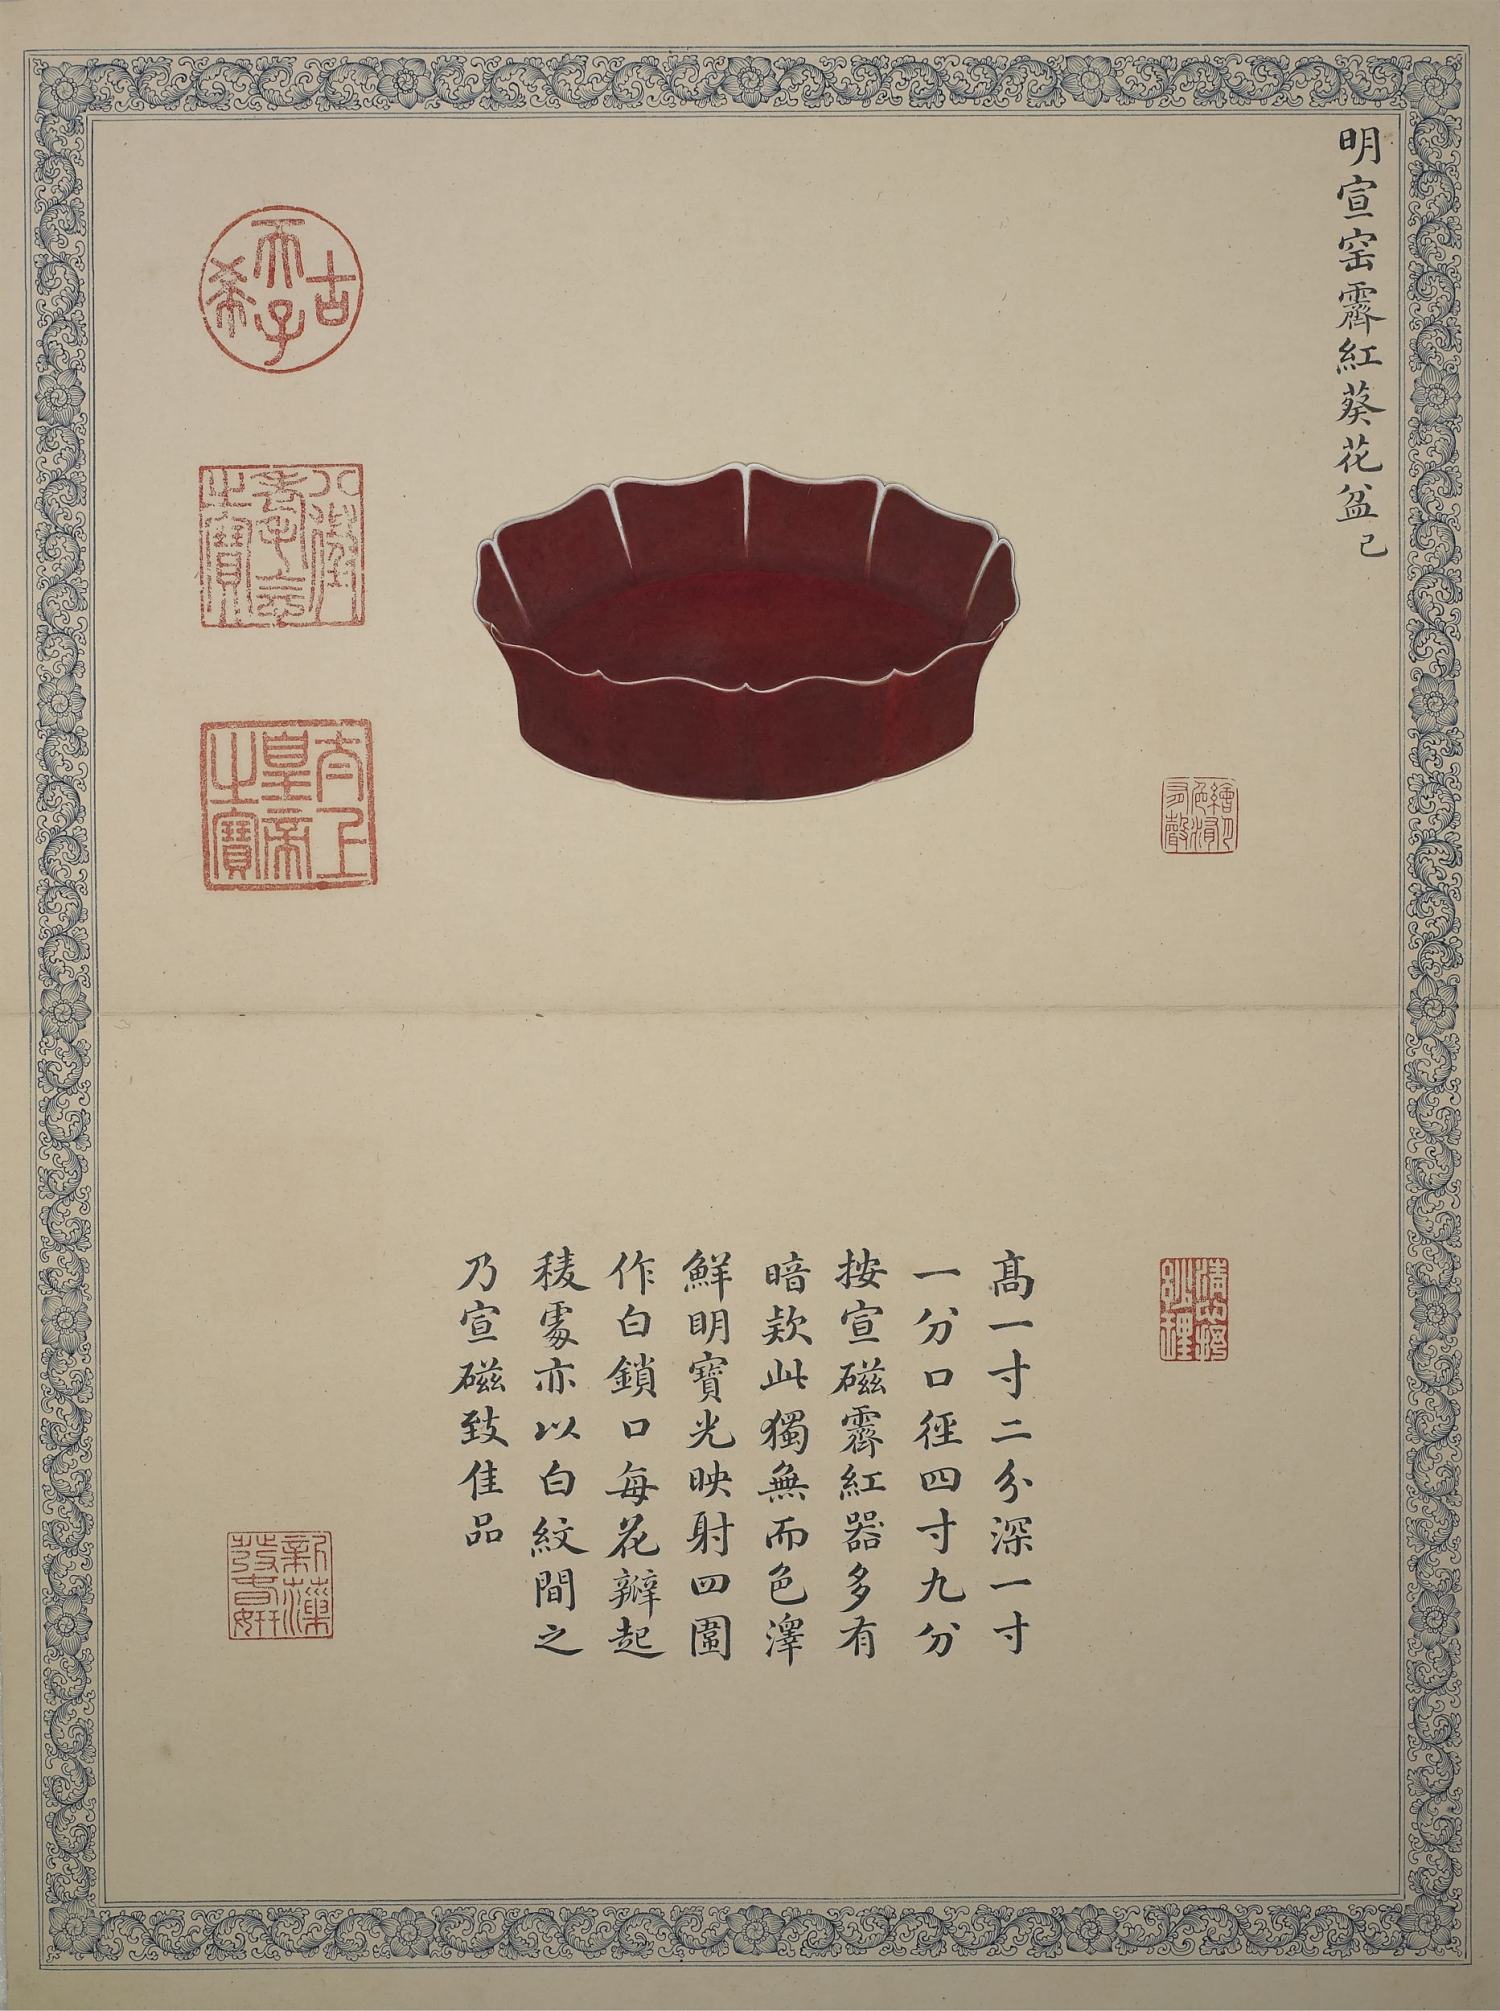 明宣窑霽紅葵花盆 己
繪月色湏有聲
古希天子
八徵耄念之寶
太上皇帝之寶
高一寸二分深一寸
一分口徑四寸九分
按宣磁霽紅器多有
暗款此獨無而色澤
鮮明寶光映射四圍
作白鎖口每花瓣起
稜處亦以白紋間之
乃宣磁致佳品